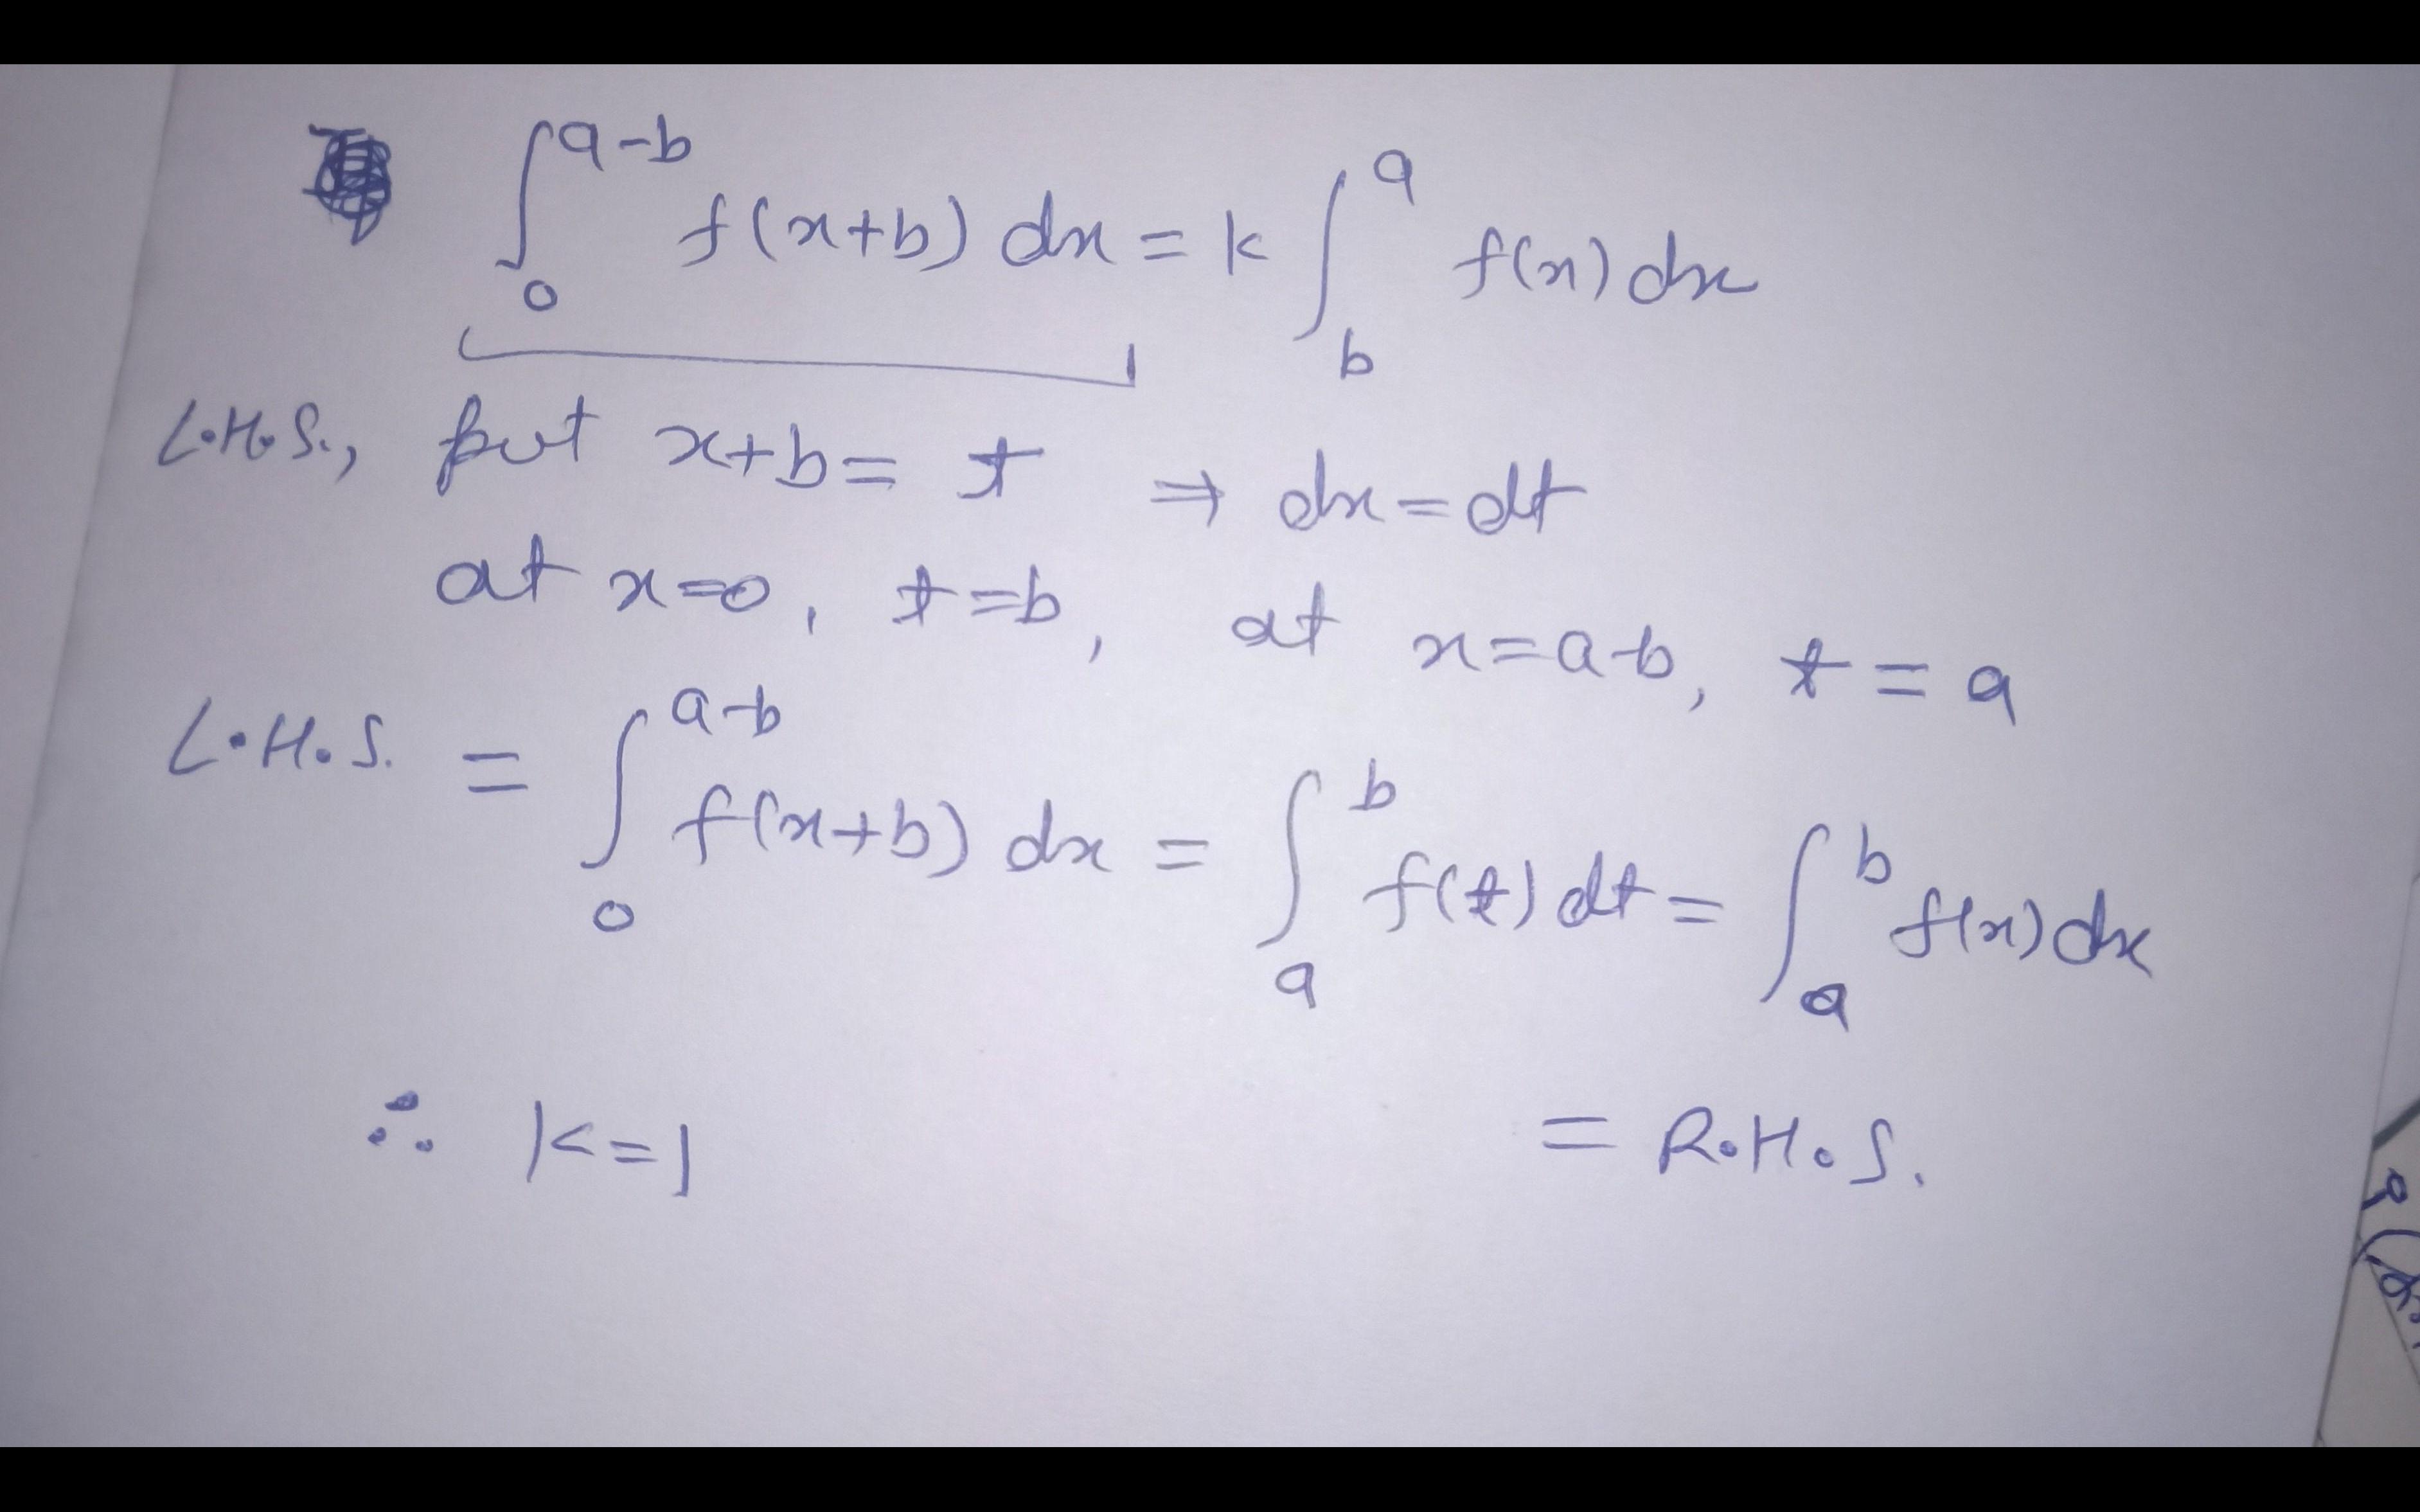 ∫₀^{a-b} f(x+b) dx = k ∫_b^a f(x) dx
L.H.S., put x+b = t ⇒ dx = dt
at x=0, t=b, at x=a-b, t=a
L.H.S. = ∫₀^{a-b} f(x+b) dx = ∫_a^b f(t) dt = ∫_a^b f(x) dx
∴ K=1 = R.H.S.